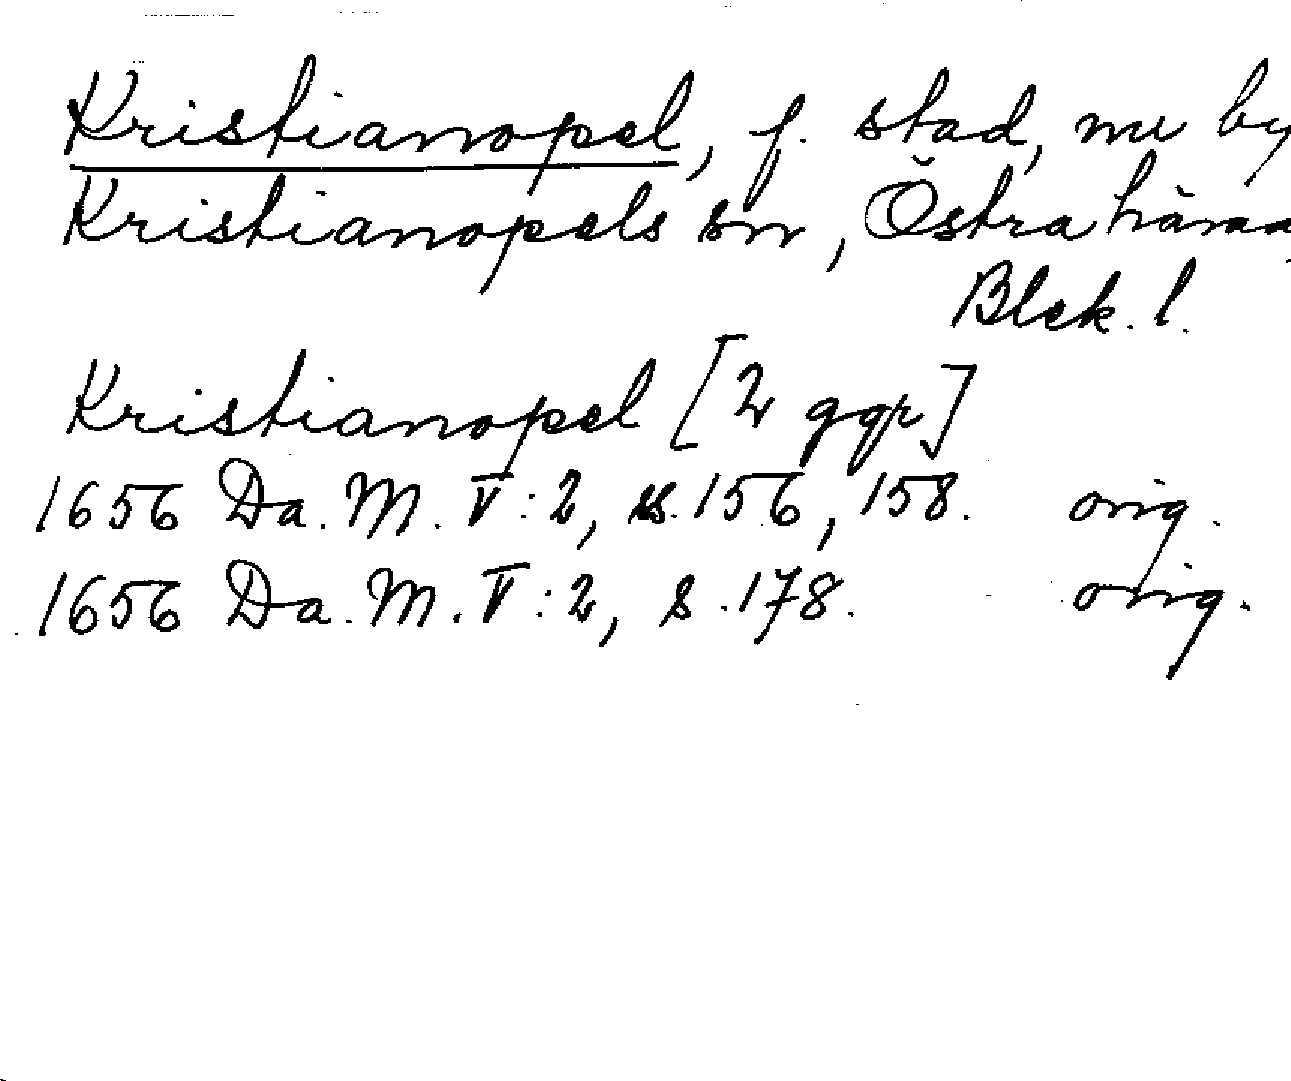 Kristianopel, f. stad, nu by
Kristianopels sn, Östra hära
Blek. l.
Kristianopel [2 ggr]
1656 Da. M. V:2, s. 156, 158. orig.
1656 Da. M. V:2, s. 178. orig.